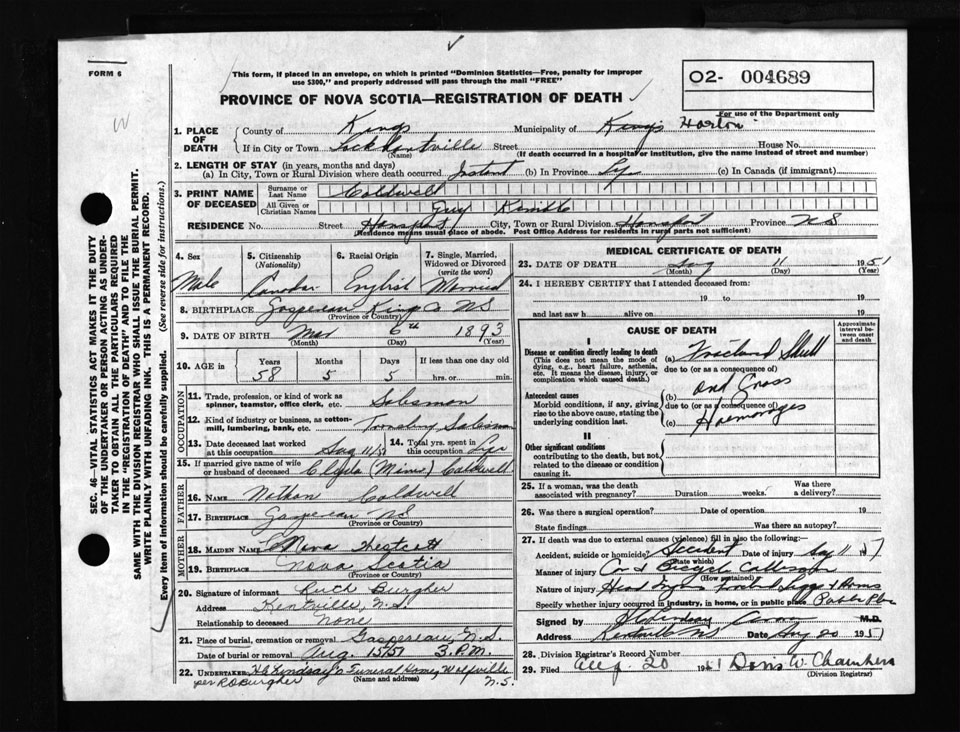 FORM 6
This form, if placed in an envelope, on which is printed "Dominion Statistics—Free, penalty for improper
use $300," and properly addressed will pass through the mail "FREE"
O2- 004689
PROVINCE OF NOVA SCOTIA—REGISTRATION OF DEATH
For use of the Department only
1. PLACE OF DEATH
County of Kings Municipality of Kings
If in City or Town Lockhartville Street House No.
(Name) (If death occurred in a hospital or institution, give the name instead of street and number)
2. LENGTH OF STAY (in years, months and days)
(a) In City, Town or Rural Division where death occurred (b) In Province Life (c) In Canada (if immigrant)
3. PRINT NAME OF DECEASED
Surname or Last Name Coldwell
All Given or Christian Names Guy Kimble
RESIDENCE No. Street Hantsport City, Town or Rural Division Hantsport Province N S
(Residence means usual place of abode. Post Office Address for residents in rural parts not sufficient)
4. Sex
Male
5. Citizenship (Nationality)
6. Racial Origin
English
7. Single, Married, Widowed or Divorced (write the word)
Married
8. BIRTHPLACE Gaspereau Kings Co NS
(Province or Country)
9. DATE OF BIRTH Mar 6th 1893
(Month) (Day) (Year)
10. AGE in
Years Months Days If less than one day old
58 5 5 hrs. or min.
OCCUPATION
11. Trade, profession, or kind of work as spinner, teamster, office clerk, etc. Salesman
12. Kind of industry or business, as cotton-mill, lumbering, bank, etc. Salesman
13. Date deceased last worked at this occupation Aug 11/51
14. Total yrs. spent in this occupation
15. If married give name of wife or husband of deceased Coldwell
FATHER
16. NAME Nathan Coldwell
17. BIRTHPLACE Gaspereau NS
(Province or Country)
MOTHER
18. MAIDEN NAME
19. BIRTHPLACE Nova Scotia
(Province or Country)
20. Signature of informant Burgher
Address Kentville, N.S.
Relationship to deceased None
21. Place of burial, cremation or removal Gaspereau, N.S.
Date of burial or removal Aug. 15/51 3 P.M.
22. UNDERTAKER H.C. Lindsay's Funeral Home, Wolfville
per R.O. Burgher N.S.
MEDICAL CERTIFICATE OF DEATH
23. DATE OF DEATH Aug 11 1951
(Month) (Day) (Year)
24. I HEREBY CERTIFY that I attended deceased from:
19 to 19
and last saw h alive on 19
CAUSE OF DEATH
Approximate interval between onset and death
I
Disease or condition directly leading to death
(This does not mean the mode of dying, e.g., heart failure, asthenia, etc. It means the disease, injury, or complication which caused death.)
(a) Skull
due to (or as a consequence of)
Antecedent causes
Morbid conditions, if any, giving rise to the above cause, stating the underlying condition last.
(b) and Gross
due to (or as a consequence of)
(c) Hemorrages
II
Other significant conditions
contributing to the death, but not related to the disease or condition causing it.
25. If a woman, was the death associated with pregnancy? Duration weeks. Was there a delivery?
26. Was there a surgical operation? Date of operation 19
State findings Was there an autopsy?
27. If death was due to external causes (violence) fill in also the following:
Accident, suicide or homicide? Accident Date of injury Aug 11 1951
(State which)
Manner of injury Car & Bicycle Collision
(How sustained)
Nature of injury Head Legs & Arms
Specify whether injury occurred in industry, in home, or in public place Public Place
Signed by M.D.
Address Kentville NS Date Aug 20 1951
28. Division Registrar's Record Number
29. Filed Aug. 20 1951 Doris W. Chambers
(Division Registrar)
SEC. 46—VITAL STATISTICS ACT MAKES IT THE DUTY
OF THE UNDERTAKER OR PERSON ACTING AS UNDER-
TAKER TO OBTAIN ALL THE PARTICULARS REQUIRED
IN THE "REGISTRATION OF DEATH" AND TO FILE THE
SAME WITH THE DIVISION REGISTRAR WHO SHALL ISSUE THE BURIAL PERMIT.
WRITE PLAINLY WITH UNFADING INK. THIS IS A PERMANENT RECORD.
Every item of information should be carefully supplied. (See reverse side for instructions.)